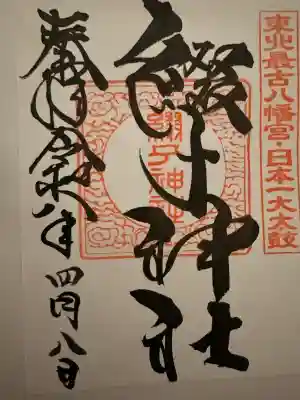 東北最古八幡宮・日本一大太鼓
綴子神社
綴子神社
奉拝 令和八年 四月八日